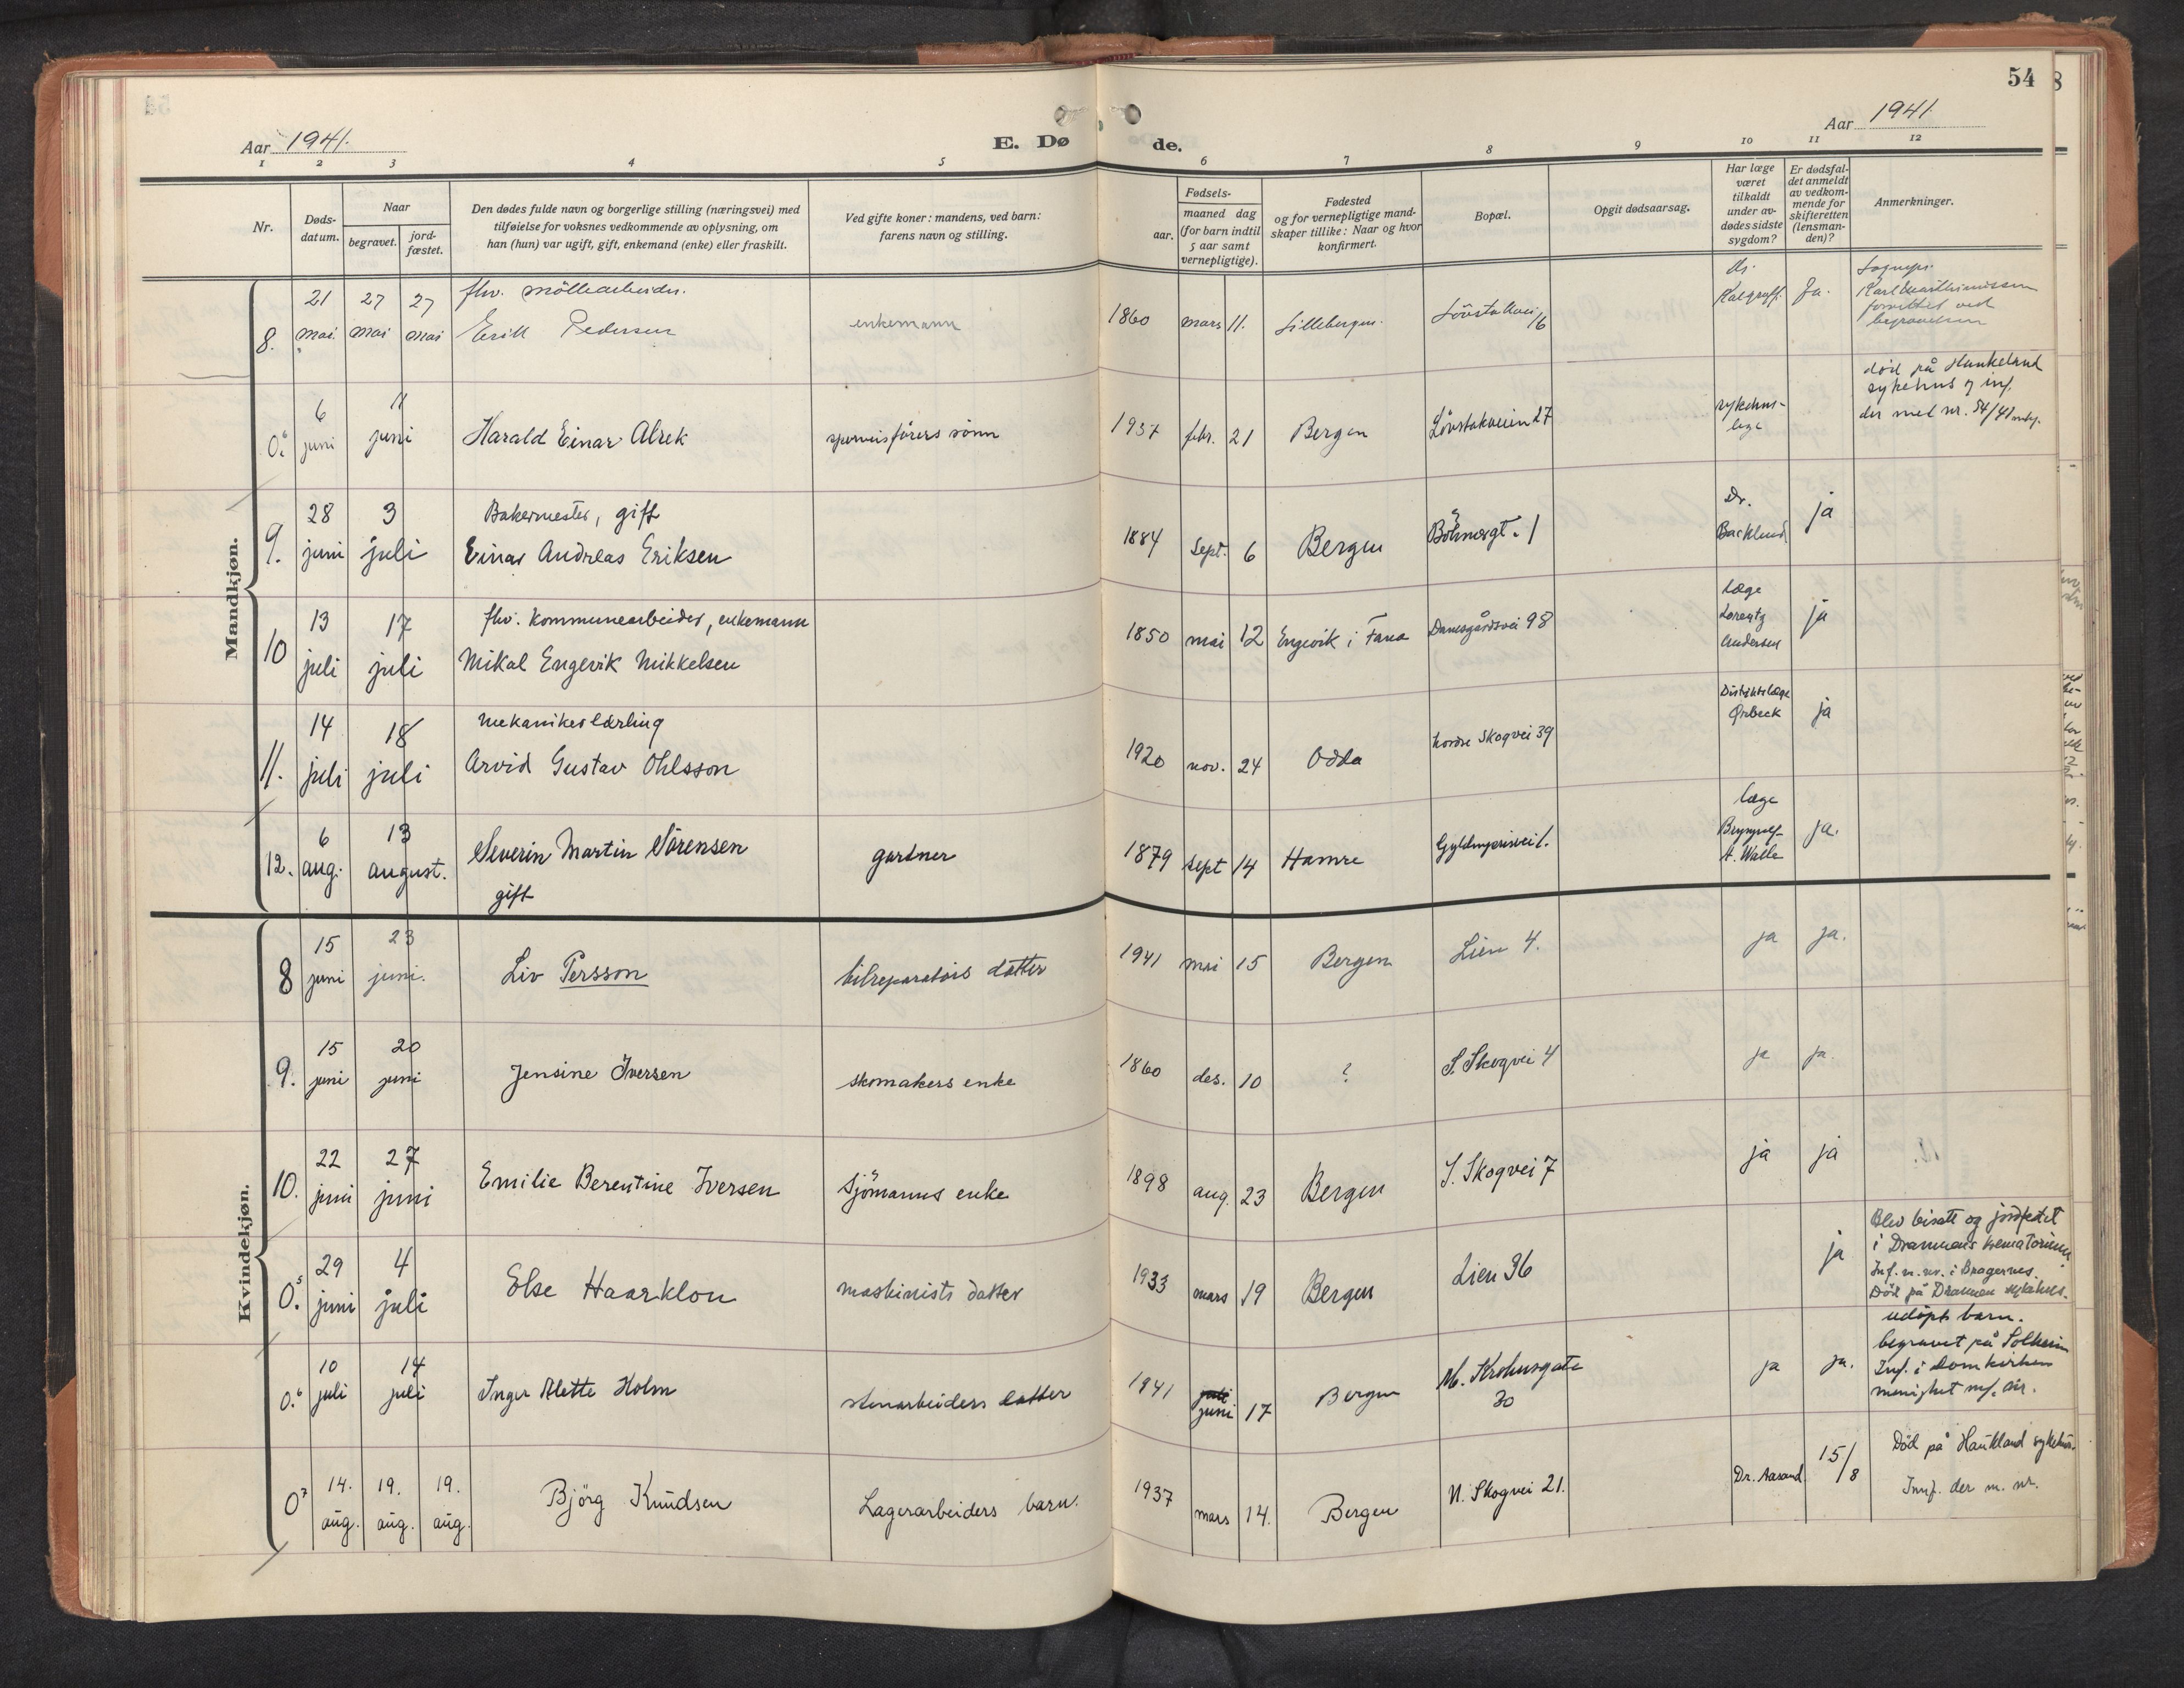 54
Aar 1941.
E. Døde.
Aar 1941
1 2 3 4 5 6 7 8 9 10 11 12
Nr.
Døds-
datum.
Naar
begravet.
jord-
fæstet.
Den dødes fulde navn og borgerlige stilling (næringsvei) med
tilføielse for voksnes vedkommende av oplysning, om
han (hun) var ugift, gift, enkemand (enke) eller fraskilt.
Ved gifte koner: mandens, ved barn:
farens navn og stilling.
Fødsels-
aar.
maaned dag
(for barn indtil
5 aar samt
vernepligtige).
Fødested
og for vernepligtige mand-
skaper tillike: Naar og hvor
konfirmert.
Bopæl.
Opgit dødsaarsag.
Har læge
været
tilkaldt
under av-
dødes sidste
sygdom?
Er dødsfal-
det anmeldt
av vedkom-
mende for
skifteretten
(lensman-
den)?
Anmerkninger.
Mandkjøn.
8. 21 mai 27 mai 27 mai
fhv. möllearbeider.
Erik Pedersen
enkemann
1860 mars 11. Lillebergen. Lövstakvei 16
dr. Kalgraff. Ja.
Sognepr.
forrettet ved
begravelsen
0.6 6 juni 11 juni
Harald Einar Alrek
sporveisförers sönn
1937 febr. 21 Bergen Lövstakveien 27
sykehus-
lege
död på Haukeland
sykehus og inf.
der med nr. 54/41
9. 28 juni 3 juli
Bakermester, gift
Einar Andreas Eriksen
1884 Sept. 6 Bergen Böhmersgt. 1
Dr.
Backlund
ja
10 13 juli 17 juli
fhv. kommunearbeider, enkemann
Mikal Engevik Mikkelsen
1850 mai 12 Engevik i Fana Damsgårdsvei 98
Læge
Lorentz
Andersen
ja
11. 14 juli 18 juli
mekanikerlærling
Arvid Gustav Ohlsson
1920 nov. 24 Odda Nordre Skogvei 39
Distriktslæge
Ørbeck
ja
12. 6 aug. 13 august.
Severin Martin Sörensen
gift
gartner
1879 sept 14 Hamre Gyldenprisvei 1.
læge
Brynjulf
A. Walle
ja.
Kvindekjøn.
8 15 juni 23 juni.
Liv Persson
bilreparatörs datter
1941 mai 15 Bergen Lien 4. ja ja.
9. 15 juni 20 juni
Jensine Iversen
skomakers enke
1860 des. 10 ? S. Skogvei 4 ja ja.
10. 22 juni 27 juni
Emilie Berentine Iversen
Sjömanns enke
1898 aug. 23 Bergen S. Skogvei 7 ja ja
0.5 29 juni 4 juli
Else Haarklou
maskinists datter
1933 mars 19 Bergen Lien 36 ja
Blev bisatt og jordfestet
i Drammens krematorium
Inf. u. nr. i Bragernes.
Död på Drammen sykehus.
0.6 10 juli 14 juli
Inger Alette Holm
stenarbeiders datter
1941 juli juni 17 Bergen M. Krohnsgate
30
ja ja.
udöpt barn.
begravet på Solheim
Inf. i Domkirken
menighet
0.7 14. aug. 19. aug. 19. aug.
Björg Knudsen
Lagerarbeiders barn.
1937 mars 14. Bergen N. Skogvei 21.
Dr. Aasand 15/8
Död på Haukland sykehus.
Innf. der m. nr.